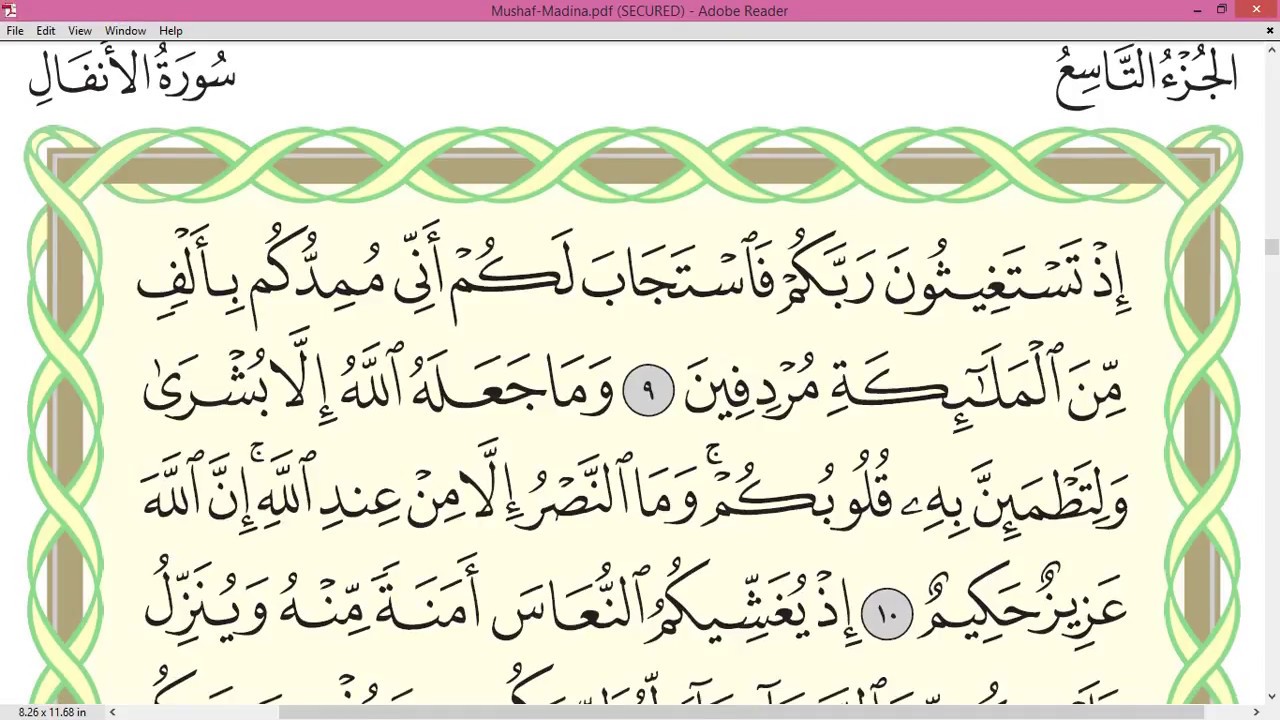 Mushaf-Madina.pdf (SECURED) - Adobe Reader
File Edit View Window Help
الجُزْءُ التَّاسِعُ سُورَةُ الأَنفَالِ
إِذْ تَسْتَغِيثُونَ رَبَّكُمْ فَٱسْتَجَابَ لَكُمْ أَنِّى مُمِدُّكُم بِأَلْفٍ
مِّنَ ٱلْمَلَـٰٓئِكَةِ مُرْدِفِينَ ٩ وَمَا جَعَلَهُ ٱللَّهُ إِلَّا بُشْرَىٰ
وَلِتَطْمَئِنَّ بِهِۦ قُلُوبُكُمْ ۚ وَمَا ٱلنَّصْرُ إِلَّا مِنْ عِندِ ٱللَّهِ ۚ إِنَّ ٱللَّهَ
عَزِيزٌ حَكِيمٌ ١٠ إِذْ يُغَشِّيكُمُ ٱلنُّعَاسَ أَمَنَةً مِّنْهُ وَيُنَزِّلُ
8.26 x 11.68 in